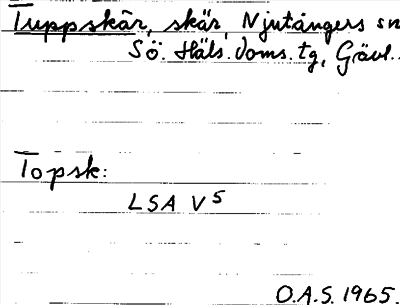 Tuppskär, skär, Njutångers sn
Sö. Häls. doms. tg, Gävl.
Topsk:
LSA V5
O.A.S. 1965.